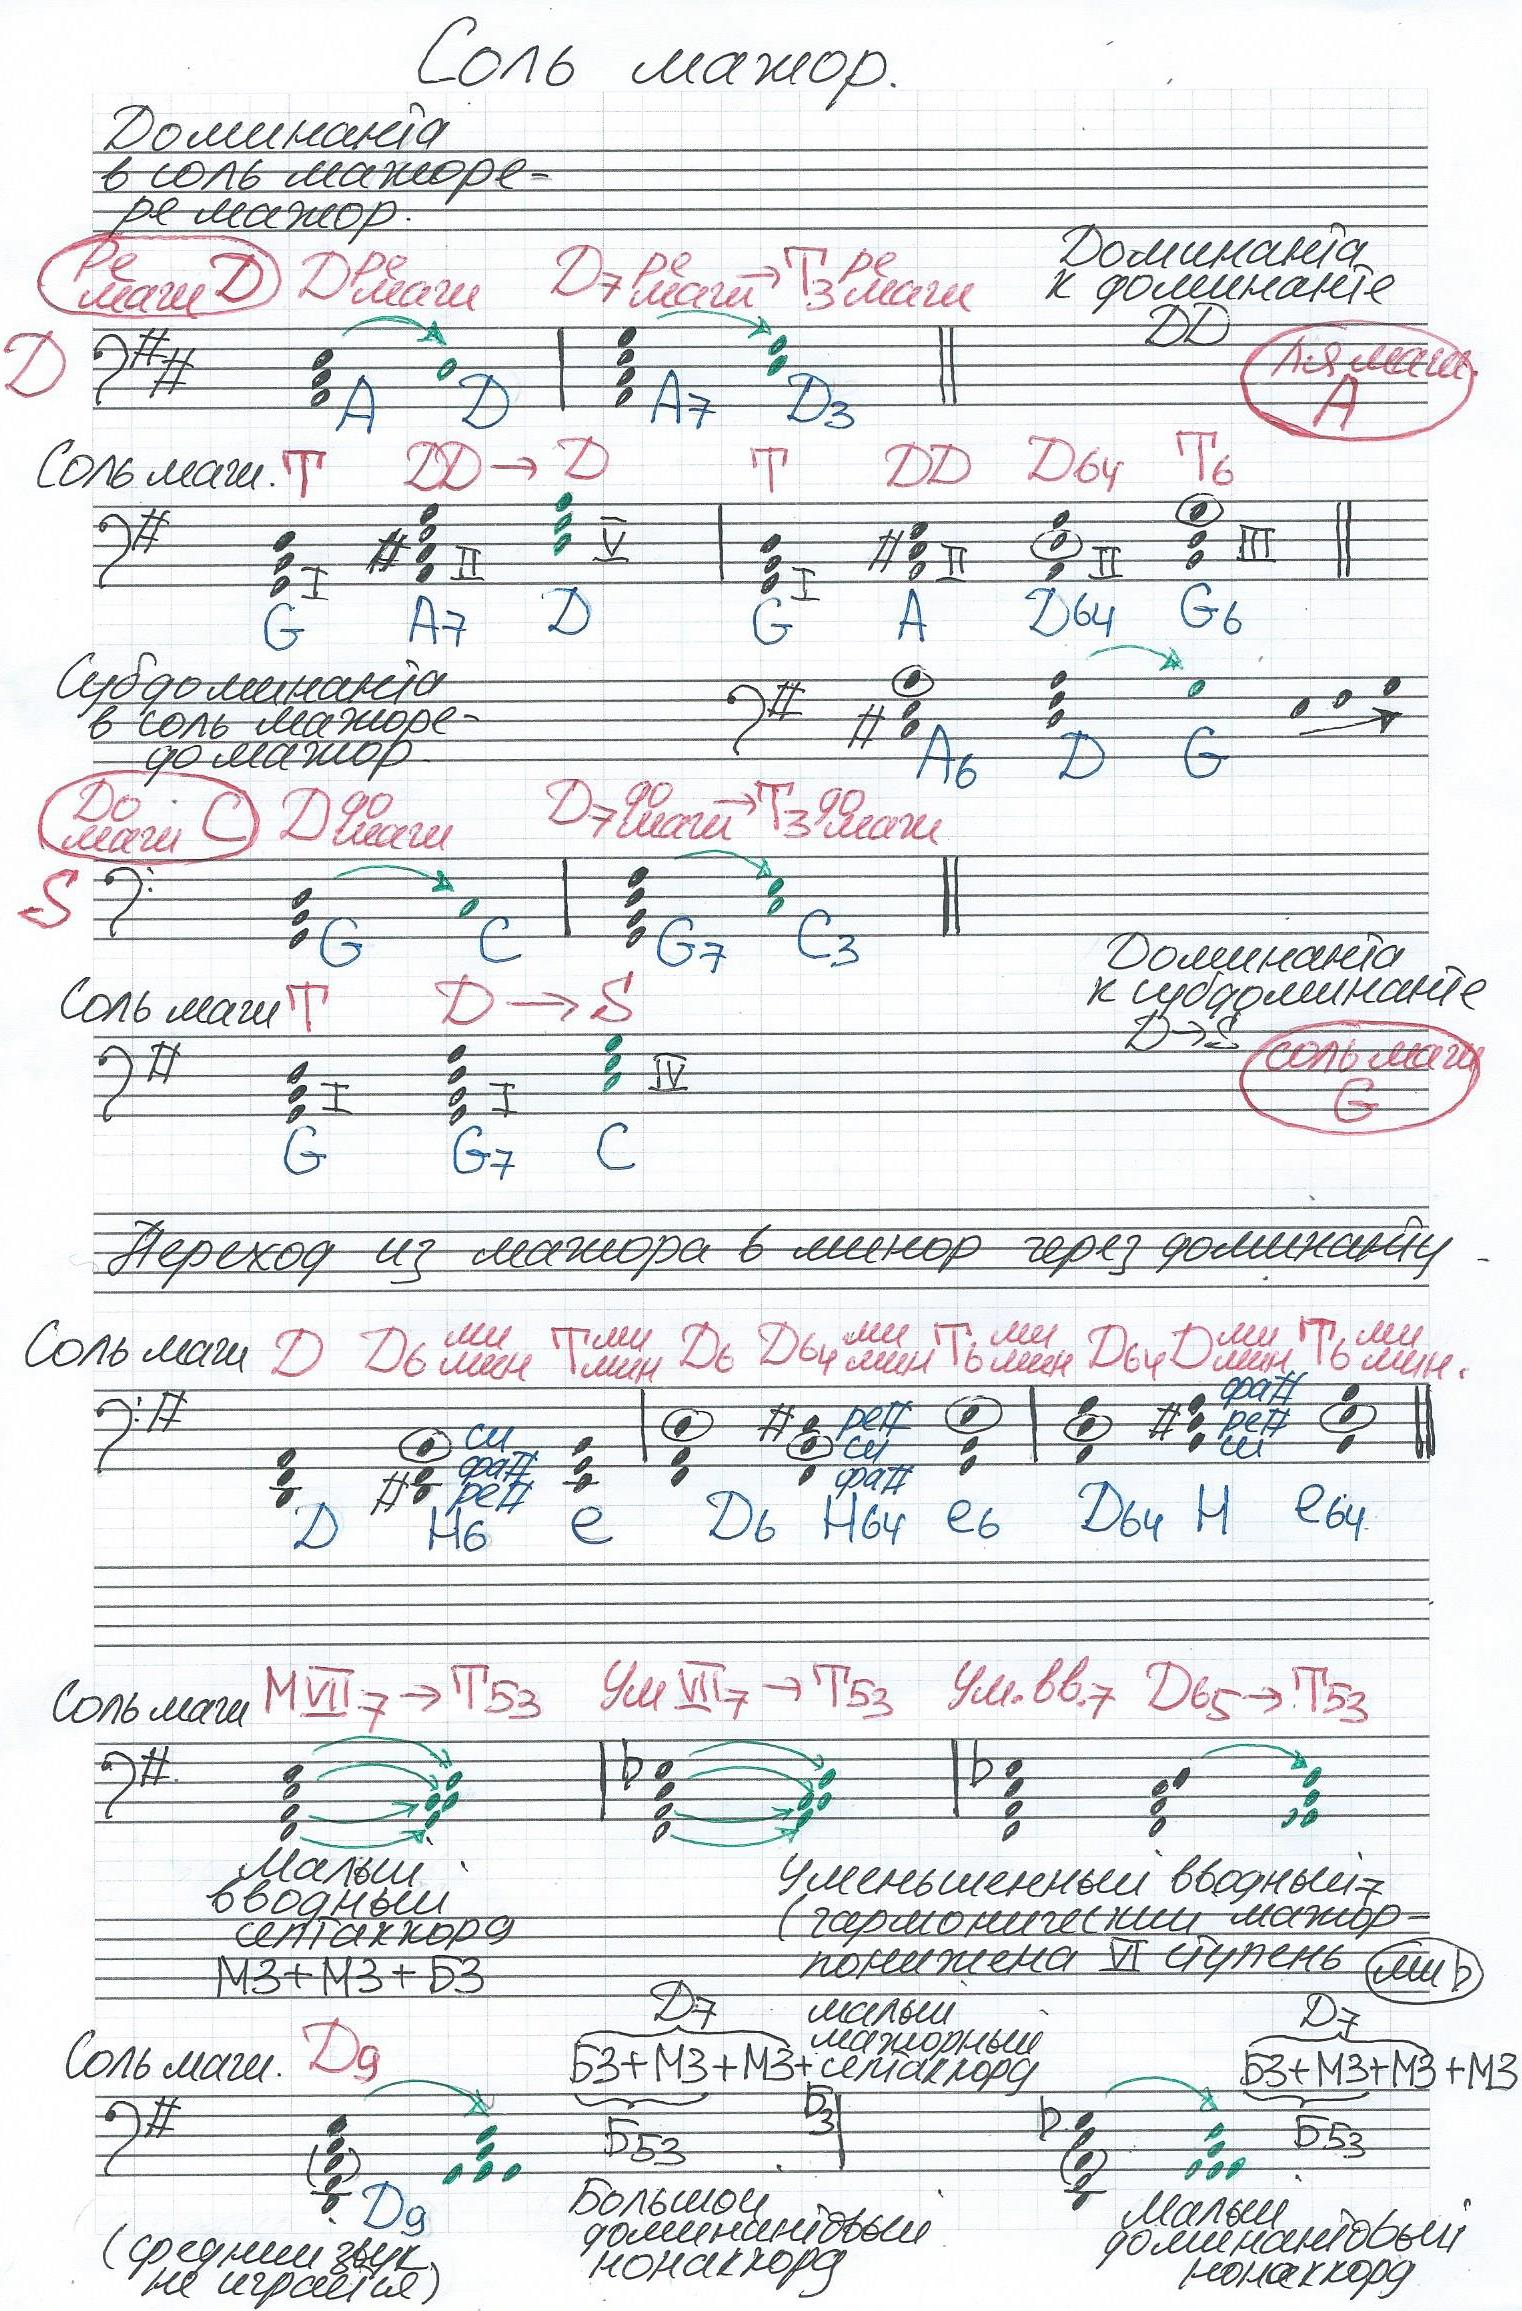 Соль мажор.
Доминанта
в соль мажоре-
ре мажор.
Ре маж D D ре маж D7 ре маж → T3 ре маж
Доминанта
к доминанте
DD
Ля маж.
A
D
A D A7 D3
Соль маж. T DD → D T DD D64 T6
I II V I II II III
G A7 D G A D64 G6
Субдоминанта
в соль мажоре-
до мажор
A6 D G
До маж C D до маж D7 до маж → T3 до маж
S
G C G7 C3
Доминанта
к субдоминанте
D→S
соль маж
G
Соль маж T D → S
I I IV
G G7 C
Переход из мажора в минор через доминанту
Соль маж D D6 ми мин T ми мин D6 D64 ми мин T6 ми мин D64 D ми мин T6 ми мин.
си фа# ре# ре# си фа# фа# ре# си
D H6 e D6 H64 e6 D64 H e64
Соль маж MVII7 → T53 Ум VII7 → T53 Ум.вв.7 D65 → T53
Малый
вводный
септаккорд
М3+М3+Б3
Уменьшенный вводный7
(гармонический мажор-
понижена VI ступень ми b
Соль маж. D9
D7
Б3+М3+М3+
Б3
Б53
малый
мажорный
септаккорд
D7
Б3+М3+М3+М3
Б53
D9
(средний звук
не играется)
Большой
доминантовый
нонаккорд
Малый
доминантовый
нонаккорд